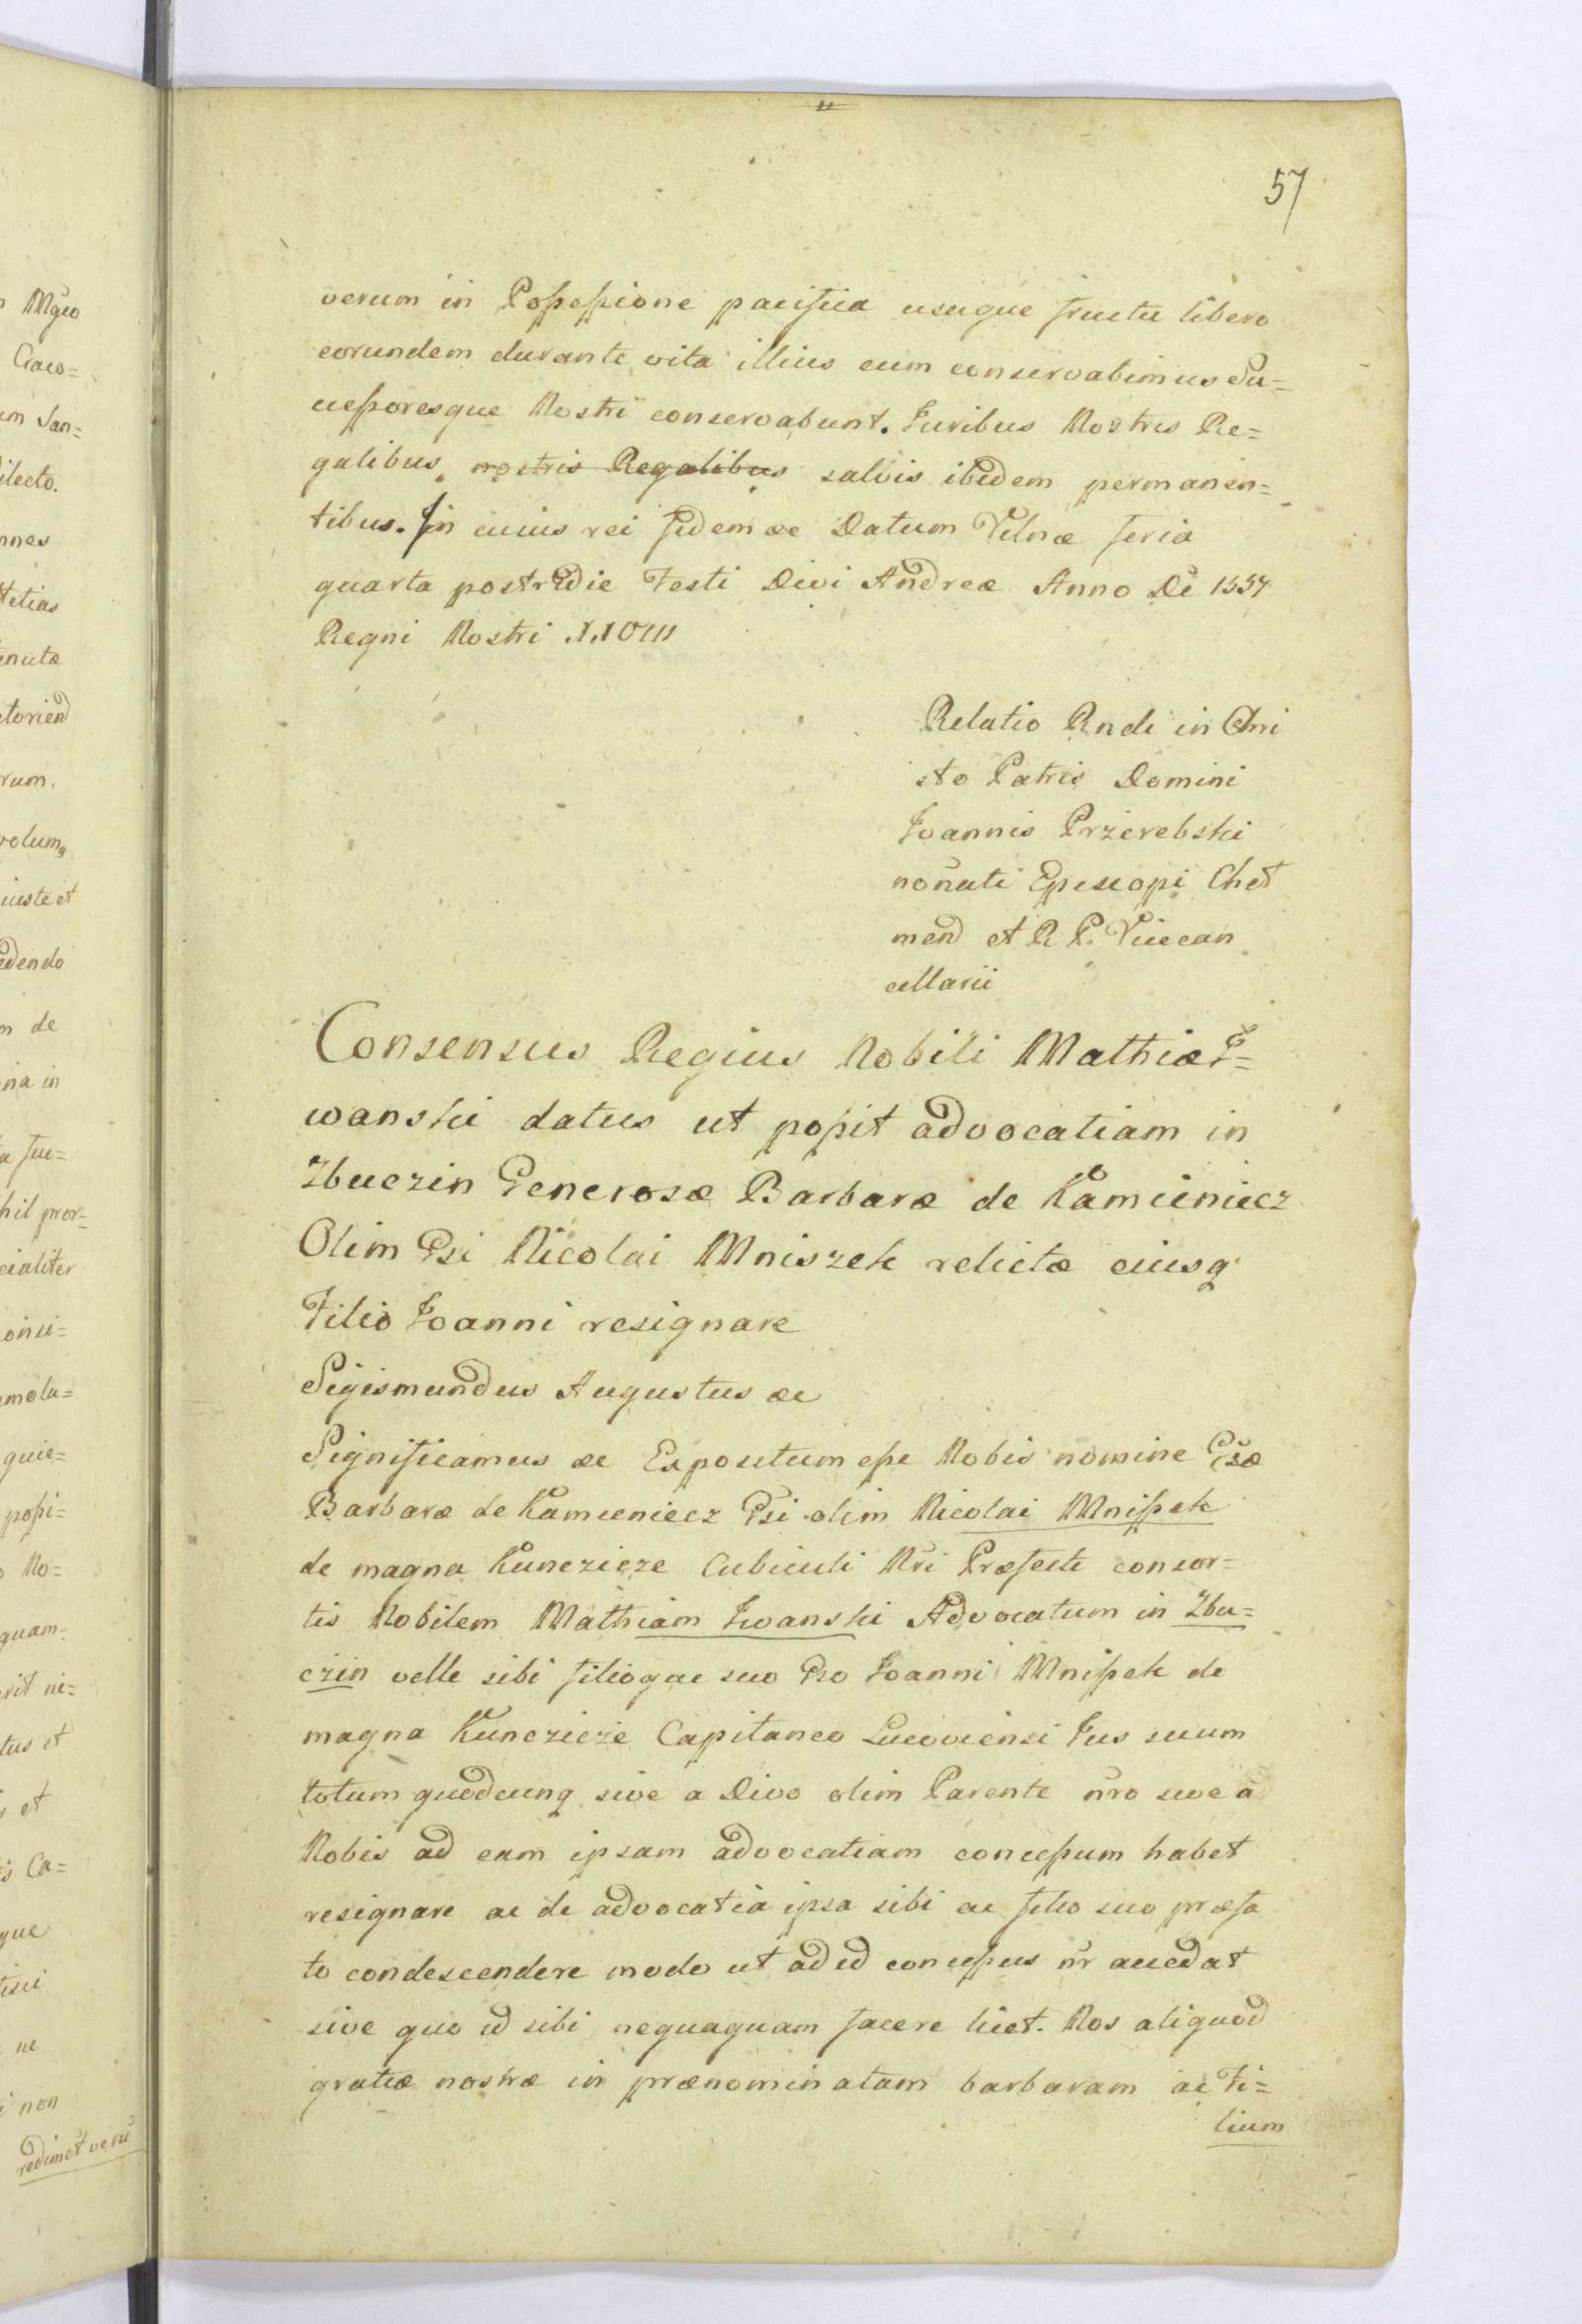 57
verum in Possessione pacifica usuque fructu libero
eorundem durante vita illius eum conservabimus Su=
ccessoresque Nostri conservabunt. Juribus Nostris Re=
galibus nostris Regalibus salvis ibidem permanen=
tibus. In cuius rei fidem &c Datum Vilnæ feria
quarta postridie Festi Divi Andreæ Anno Di 1557
Regni Nostri
Relatio Rndi in Chri
sto Patris Domini
Joannis Przerebski
nonati Episcopi Chel
men et R P. Vicecan
cellarii
Consensus Regius Nobili Mathiæ I=
wanski datus ut possit advocatiam in
Zbuczin Generosæ Barbaræ de Kamieniecz
Olim Gsi Nicolai Mniszek relictæ eiusq
Filio Joanni resignare
Sigismundus Augustus &c
Significamus &c Expositum esse Nobis nomine Gsæ
Barbaræ de Kamieniecz Gsi olim Nicolai Mnissek
de magna Kunczicze Cubiculi Nri Præfecti consor=
tis Nobilem Mathiam Iwanski Advocatum in Zbu=
czin velle sibi filioque suo Gso Joanni Mnissek de
magna Kunczicze Capitaneo Lucoviensi Jus suum
totum quodcunq sive a Divo olim Parente nro sive a
Nobis ad eam ipsam advocatiam concessum habet
resignare ac de advocatia ipsa sibi ac filio suo præfa
to condescendere modo ut ad id concessus nr accedat
sive quo id sibi nequaquam facere licet. Nos aliquod
gratiæ nostræ in prænominatam barbaram ac Fi=
lium